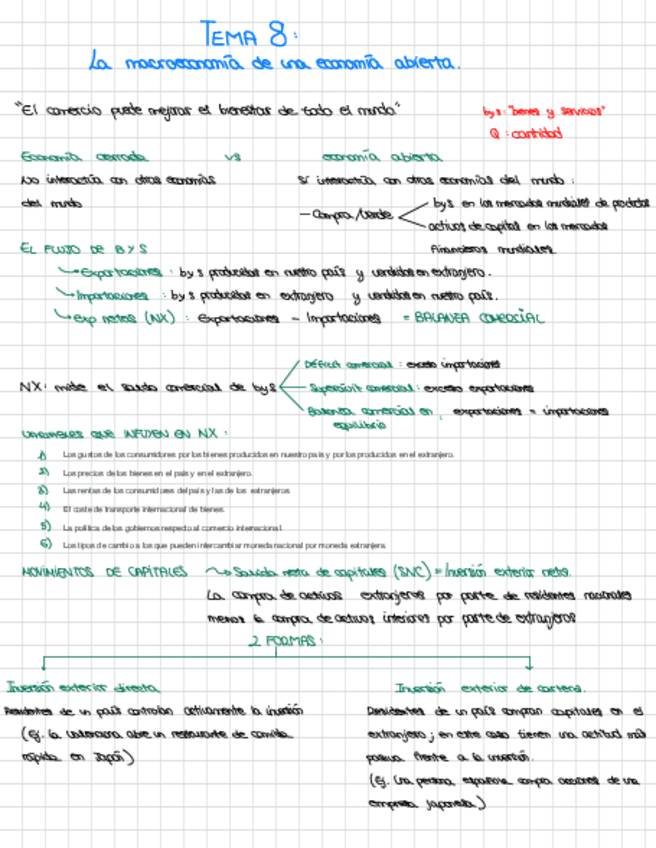 TEMA 8:
La macroeconomía de una economía abierta.
"El comercio puede mejorar el bienestar de todo el mundo"
by s: "bienes y servicios"
Q: cantidad
Economía cerrada vs economía abierta
No interactúa con otras economías
del mundo
Sí interactúa con otras economías del mundo:
- Compra/Vende
by s en los mercados mundiales de productos
activos de capital en los mercados
financieros mundiales.
EL FLUJO DE B Y S
Exportaciones: by s producidos en nuestro país y vendidos en extranjero.
Importaciones: by s producidos en extranjero y vendidos en nuestro país.
Exp netas (NX): Exportaciones - Importaciones = BALANZA COMERCIAL
NX: mide el saldo comercial de by s
Déficit comercial: exceso importaciones
Superávit comercial: exceso exportaciones
Balanza comercial en equilibrio, exportaciones = importaciones
VARIABLES QUE INFLUYEN EN NX:
1) Los gustos de los consumidores por los bienes producidos en nuestro país y por los producidos en el extranjero.
2) Los precios de los bienes en el país y en el extranjero.
3) Las rentas de los consumidores del país y las de los extranjeros
4) El coste de transporte internacional de bienes.
5) La política de los gobiernos respecto al comercio internacional.
6) Los tipos de cambio a los que pueden intercambiar moneda nacional por moneda extranjera.
MOVIMIENTOS DE CAPITALES Salida neta de capitales (SNC) = Inversión exterior neta.
La compra de activos extranjeros por parte de residentes nacionales
menos la compra de activos interiores por parte de extranjeros
2 FORMAS:
Inversión exterior directa
Residentes de un país controlan activamente la inversión
(Ej. la valenciana abre un restaurante de comida
rápida en Japón)
Inversión exterior de cartera.
Residentes de un país compran capitales en el
extranjero; en este caso tienen una actitud más
pasiva frente a la inversión.
(Ej. Una persona española compra acciones de una
empresa japonesa)